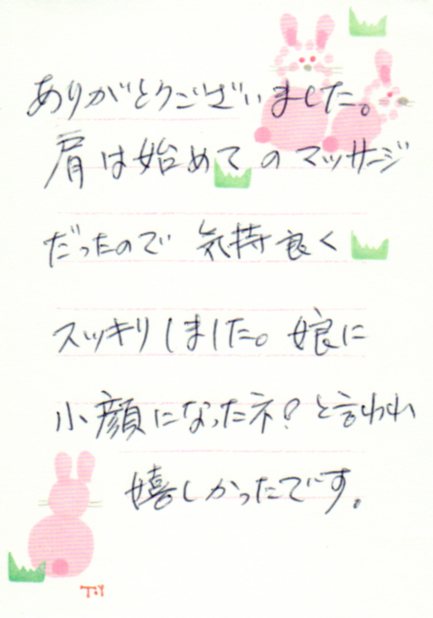 ありがとうございました。
肩は始めてのマッサージ
だったので 気持良く
スッキリしました。娘に
小顔になったネ?と言われ
嬉しかったです。